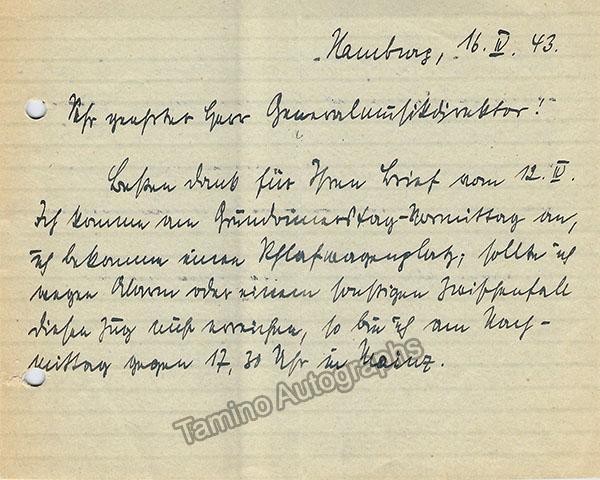 Hamburg, 16. IV. 43.
Sehr geehrter Herr Generalmusikdirektor!
Besten Dank für Ihren Brief vom 12. IV.
Ich komme am Gründonnerstag-Vormittag an,
ich bekomme einen Schlafwagenplatz; sollte ich
wegen Alarm oder einem sonstigen Zwischenfall
diesen Zug nicht erreichen, so bin ich am Nach-
mittag gegen 17,30 Uhr in Mainz.
Tamino Autographs